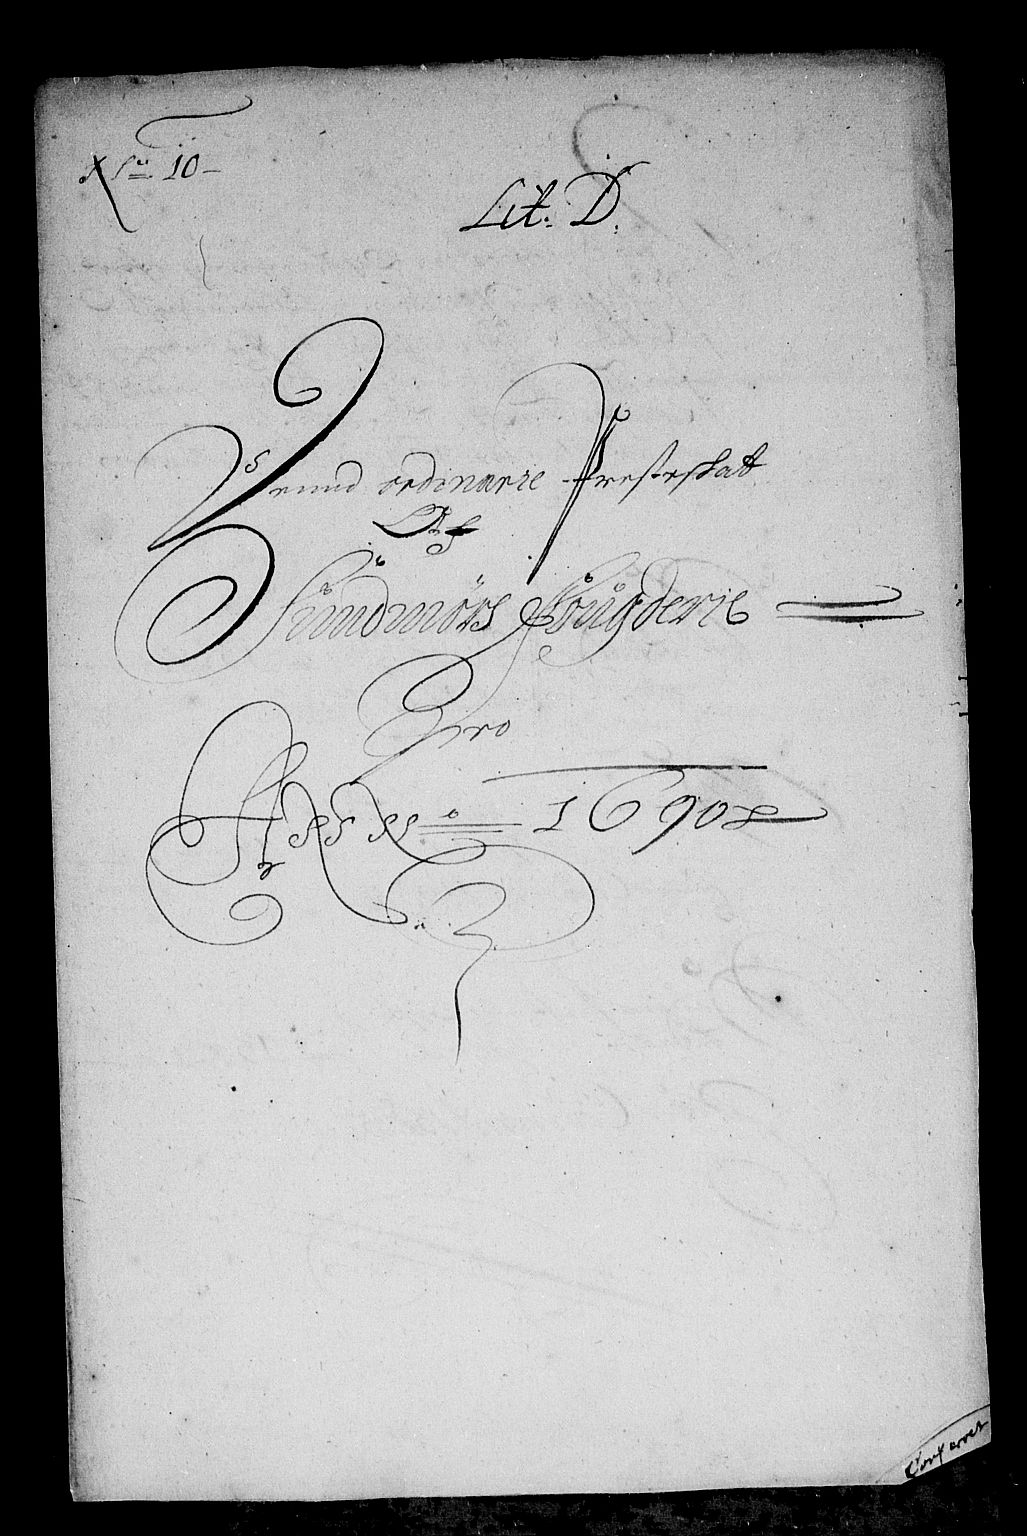 No 10
Lit: D:
ordinarie Presteskat
Af
Sundmørs Fougderie
Pro
Anno 1690
Conferert